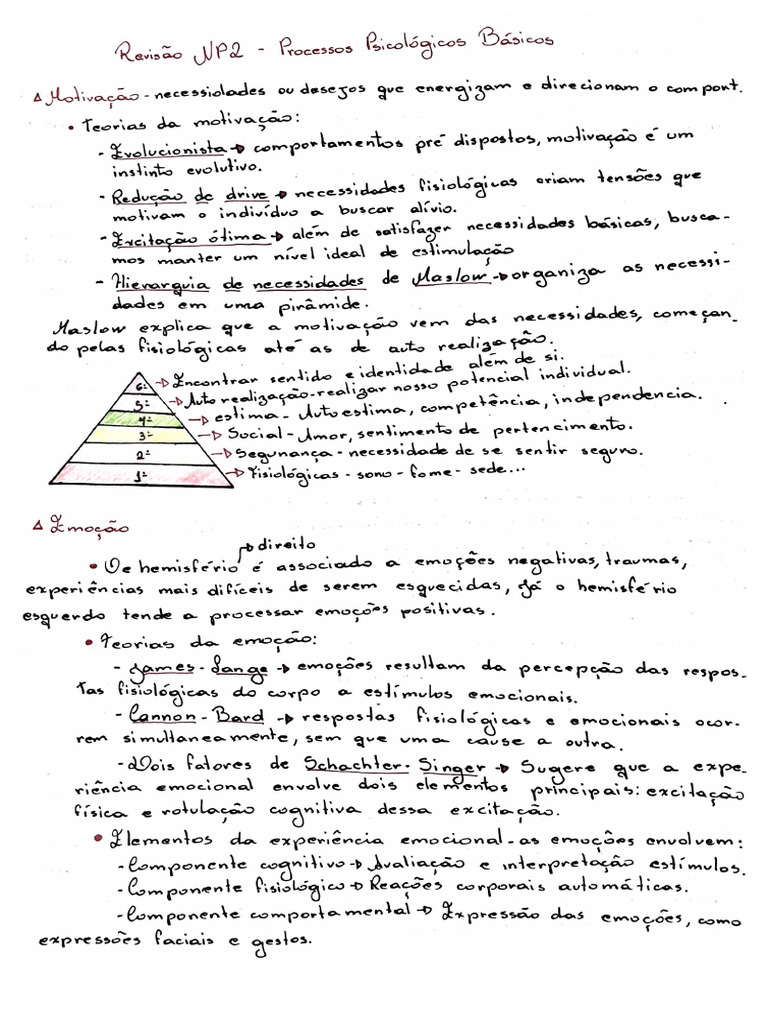 Revisão NP2 - Processos Psicológicos Básicos
Δ Motivação - necessidades ou desejos que energizam e direcionam o comport.
• Teorias da motivação:
- Evolucionista → comportamentos pré dispostos, motivação é um
instinto evolutivo.
- Redução de drive → necessidades fisiológicas criam tensões que
motivam o indivíduo a buscar alívio.
- Excitação ótima → além de satisfazer necessidades básicas, busca-
mos manter um nível ideal de estimulação
- Hierarquia de necessidades de Maslow → organiza as necessi-
dades em uma pirâmide.
Maslow explica que a motivação vem das necessidades, começan-
do pelas fisiológicas até as de auto realização.
6º → Encontrar sentido e identidade além de si.
5º → Auto realização - realizar nosso potencial individual.
4º → estima - Autoestima, competência, independencia.
3º → Social - Amor, sentimento de pertencimento.
2º → Segurança - necessidade de se sentir seguro.
1º → Fisiológicas - sono - fome - sede...
Δ Emoção
→ direito
• De hemisfério é associado a emoções negativas, traumas,
experiências mais difíceis de serem esquecidas, Já o hemisfério
esquerdo tende a processar emoções positivas.
• Teorias da emoção:
- James - Lange → emoções resultam da percepção das respos-
tas fisiológicas do corpo a estímulos emocionais.
- Cannon - Bard → respostas fisiológicas e emocionais ocor-
rem simultaneamente, sem que uma cause a outra.
- Dois fatores de Schachter - Singer → Sugere que a expe-
riência emocional envolve dois elementos principais: excitação
física e rotulação cognitiva dessa excitação.
• Elementos da experiência emocional - as emoções envolvem:
- Componente cognitivo → Avaliação e interpretação estímulos.
- Componente fisiológico → Reações corporais automáticas.
- Componente comportamental → Expressão das emoções, como
expressões faciais e gestos.